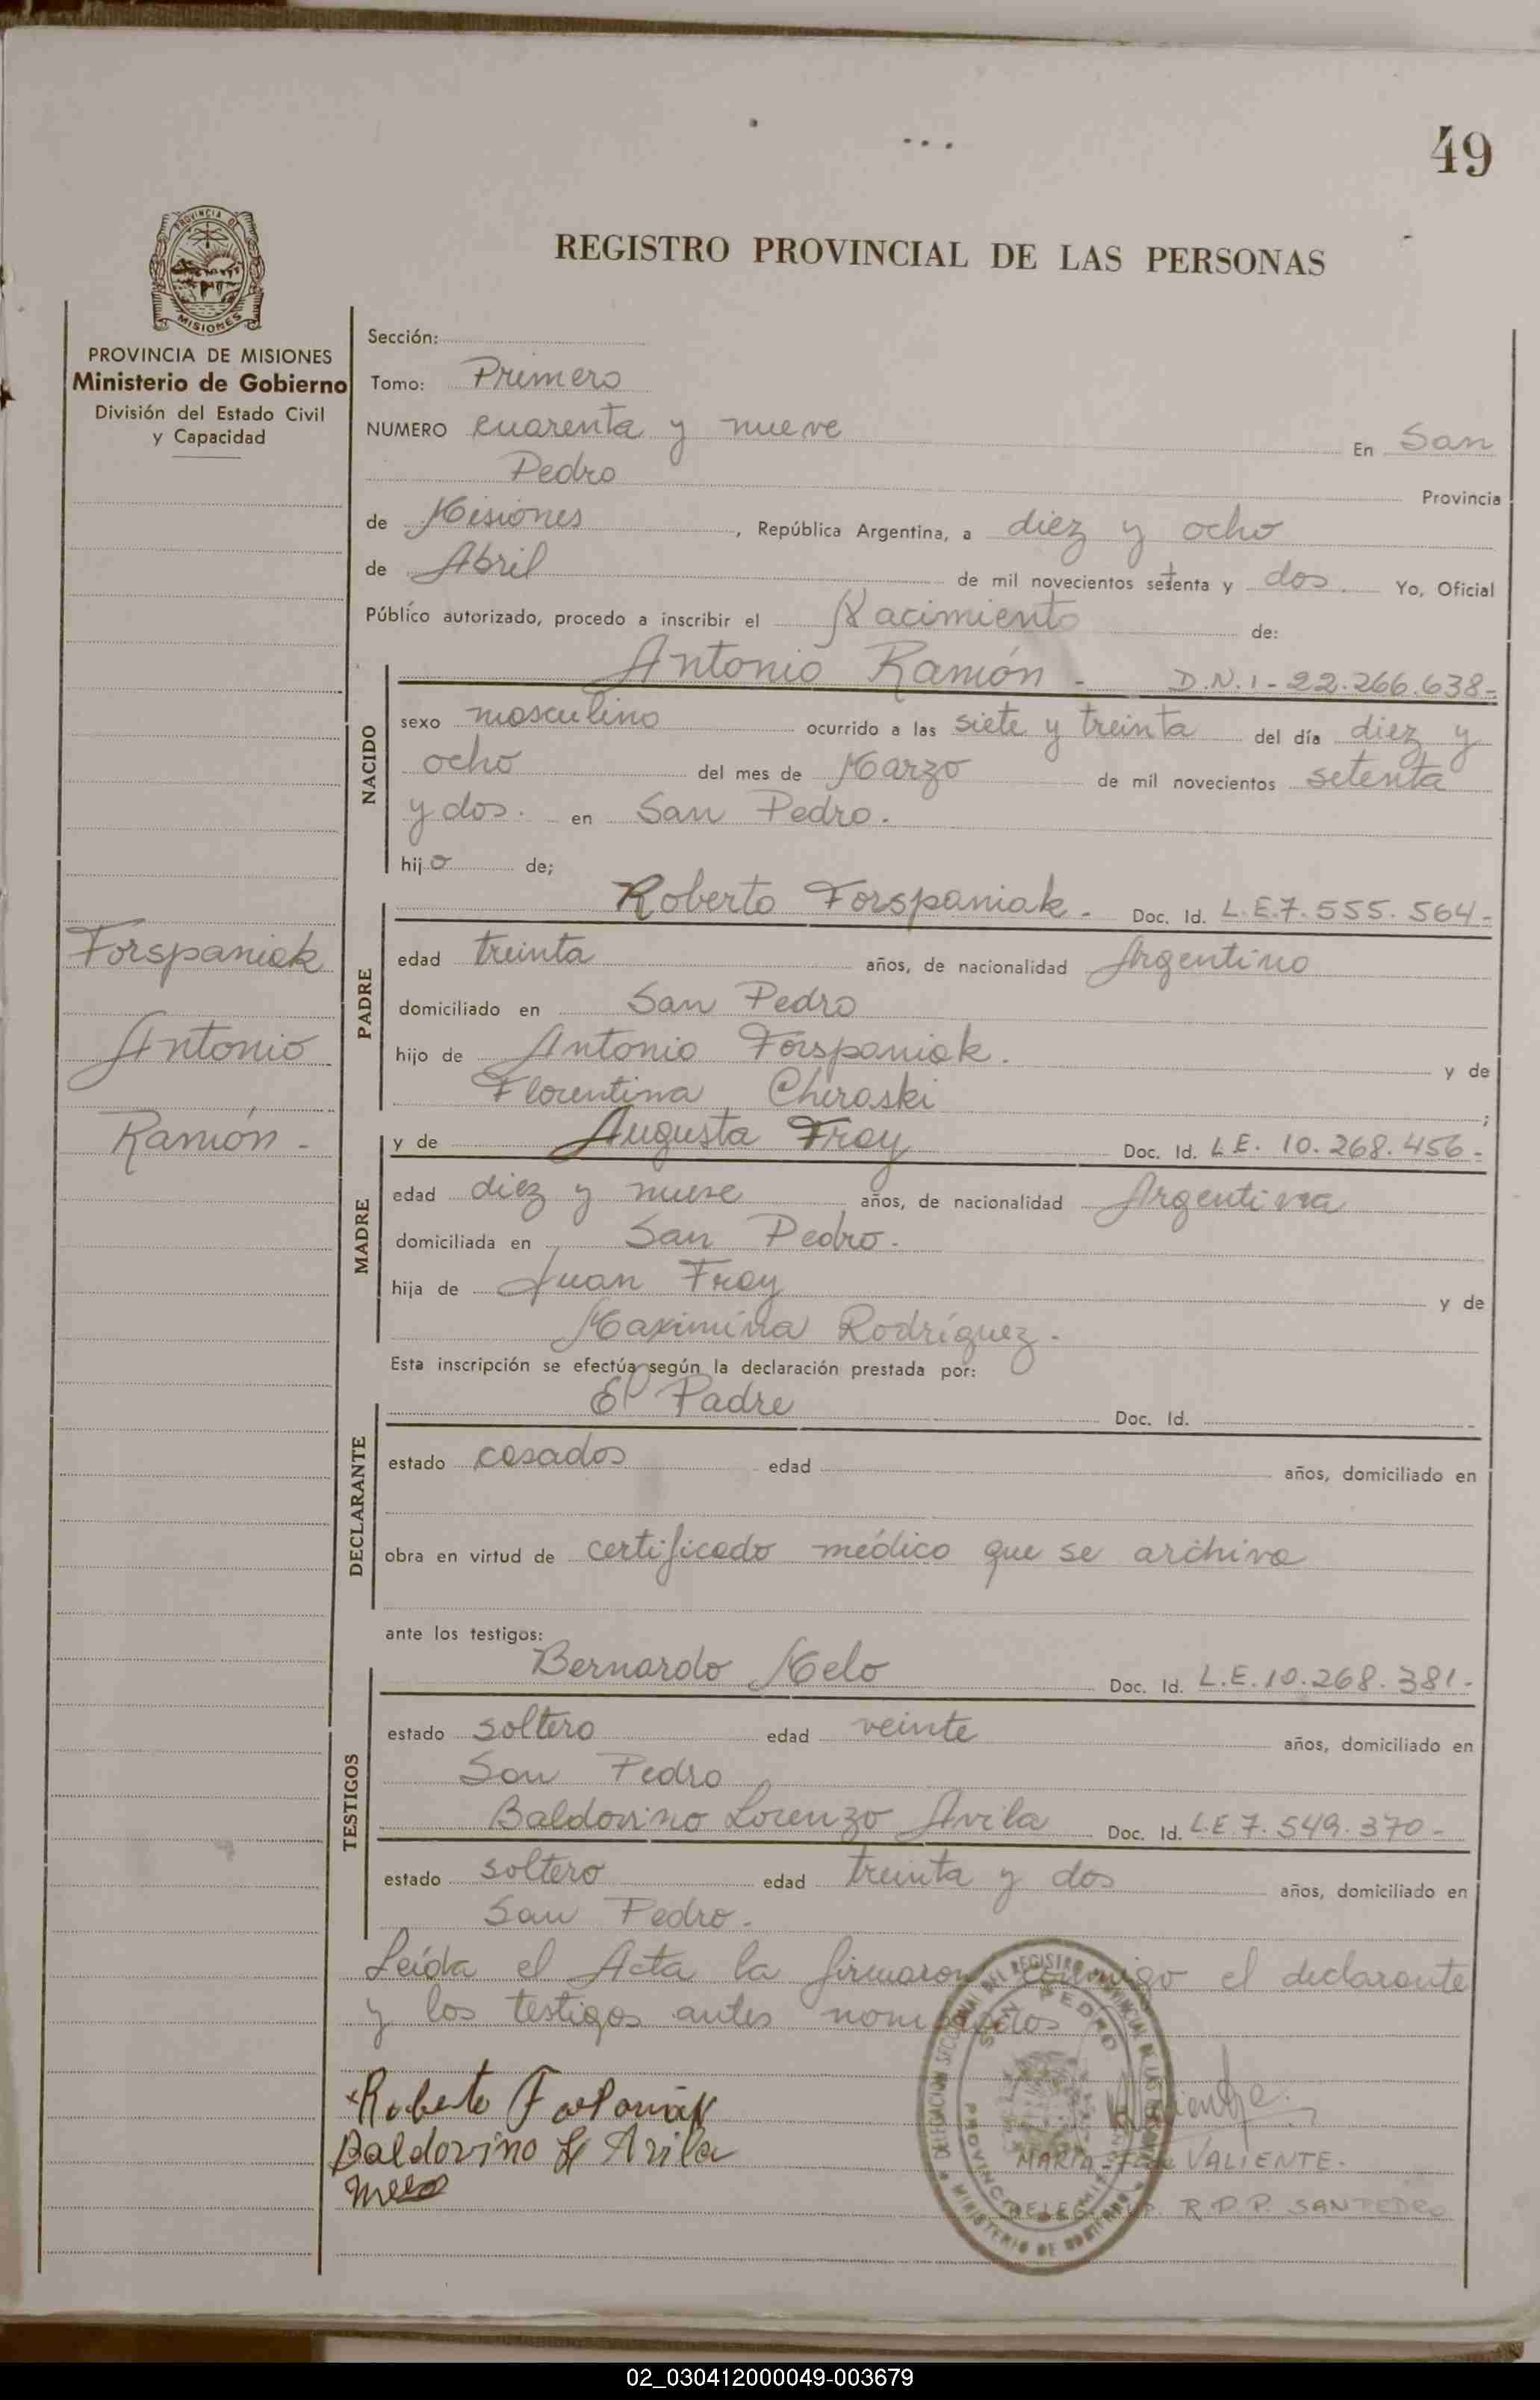 49
REGISTRO PROVINCIAL DE LAS PERSONAS
PROVINCIA DE
MISIONES
PROVINCIA DE MISIONES
Ministerio de Gobierno
División del Estado Civil
y Capacidad
Sección:
Tomo: Primero
NUMERO cuarenta y nueve En San
Pedro Provincia
de Misiones, República Argentina, a diez y ocho
de Abril de mil novecientos setenta y dos. Yo, Oficial
Público autorizado, procedo a inscribir el Nacimiento de:
Antonio Ramón - D.N.I - 22.266.638-
NACIDO
sexo masculino ocurrido a las siete y treinta del día diez y
ocho del mes de Marzo de mil novecientos setenta
y dos. en San Pedro.
hijo de;
Roberto Forspaniak. Doc. Id. L.E.7.555.564-
PADRE
edad treinta años, de nacionalidad Argentino
domiciliado en San Pedro
hijo de Antonio Forspaniak. y de
Florentina Cheroski ;
Forspaniak
Antonio
Ramón -
y de Augusta Froy Doc. Id. L.E. 10.268.456-
MADRE
edad diez y nueve años, de nacionalidad Argentina
domiciliada en San Pedro.
hija de Juan Froy y de
Maximina Rodríguez.
Esta inscripción se efectúa según la declaración prestada por:
El Padre Doc. Id.
DECLARANTE
estado casados edad años, domiciliado en
obra en virtud de certificado médico que se archiva
ante los testigos:
Bernardo Melo Doc. Id. L.E.10.268.381-
TESTIGOS
estado soltero edad veinte años, domiciliado en
San Pedro
Baldovino Lorenzo Avila Doc. Id. L.E.7.549.370-
estado soltero edad treinta y dos años, domiciliado en
San Pedro.
Leída el Acta la firmaron conmigo el declarante
y los testigos antes nombrados
Roberto
Baldovino L Avila
Melo
Valiente
MARIA VALIENTE.
R.P.P. SAN PEDRO
DELEGACION SECCIONAL DEL REGISTRO PROVINCIAL DE LAS
SAN PEDRO
MINISTERIO DE GOBIERNO
02_030412000049-003679